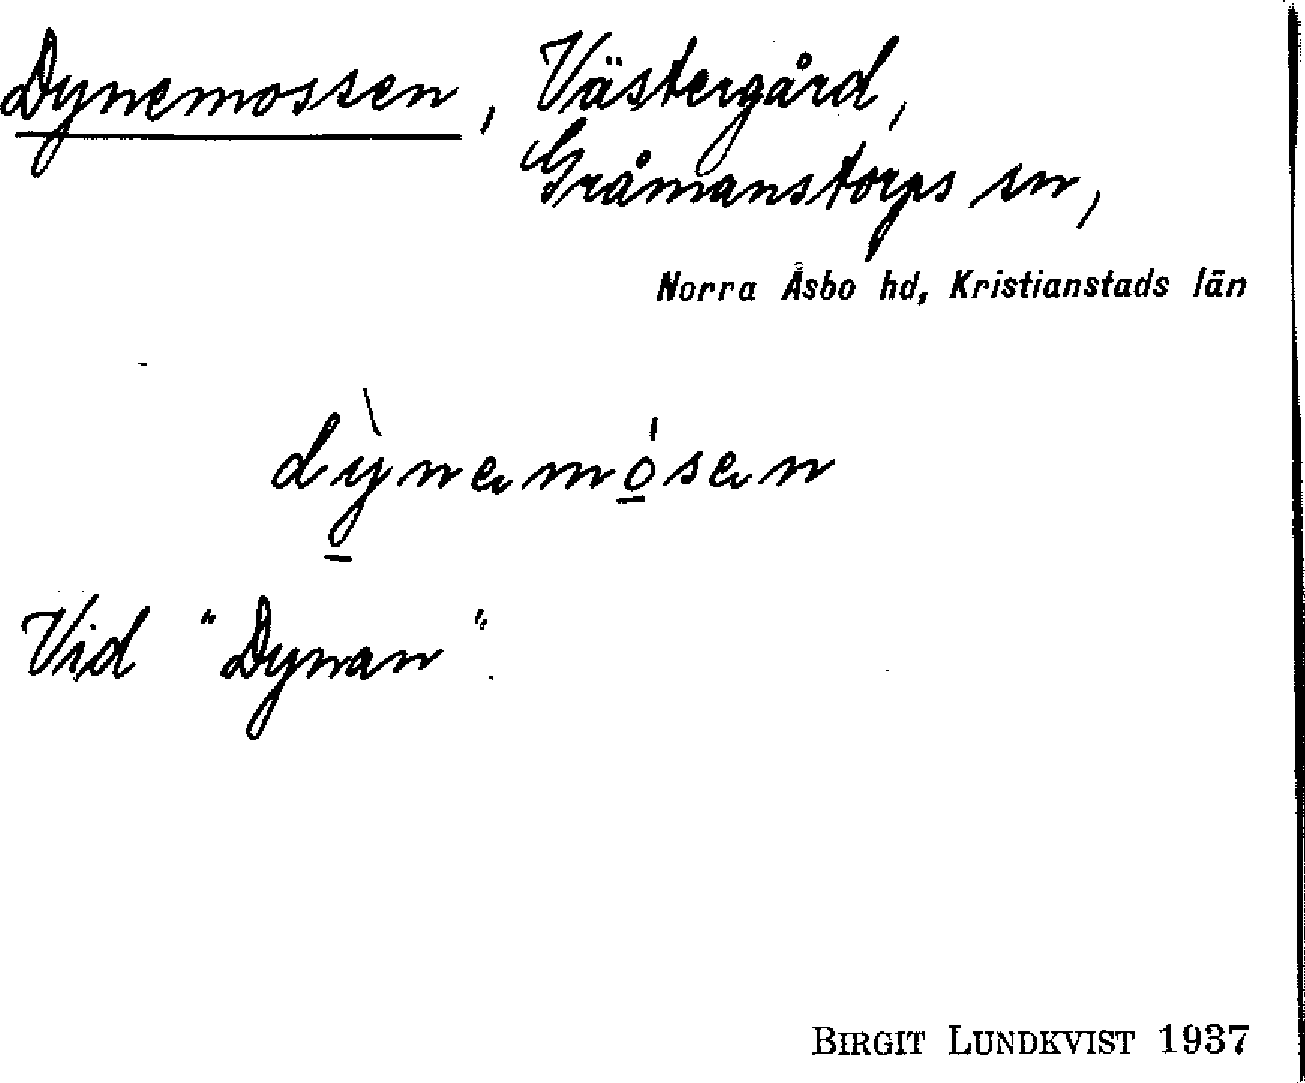 Dynemossen, Västergård,
Gråmanstorps sn,
Norra Åsbo hd, Kristianstads län
dỳnemósen
Vid "Dynan".
BIRGIT LUNDKVIST 1937